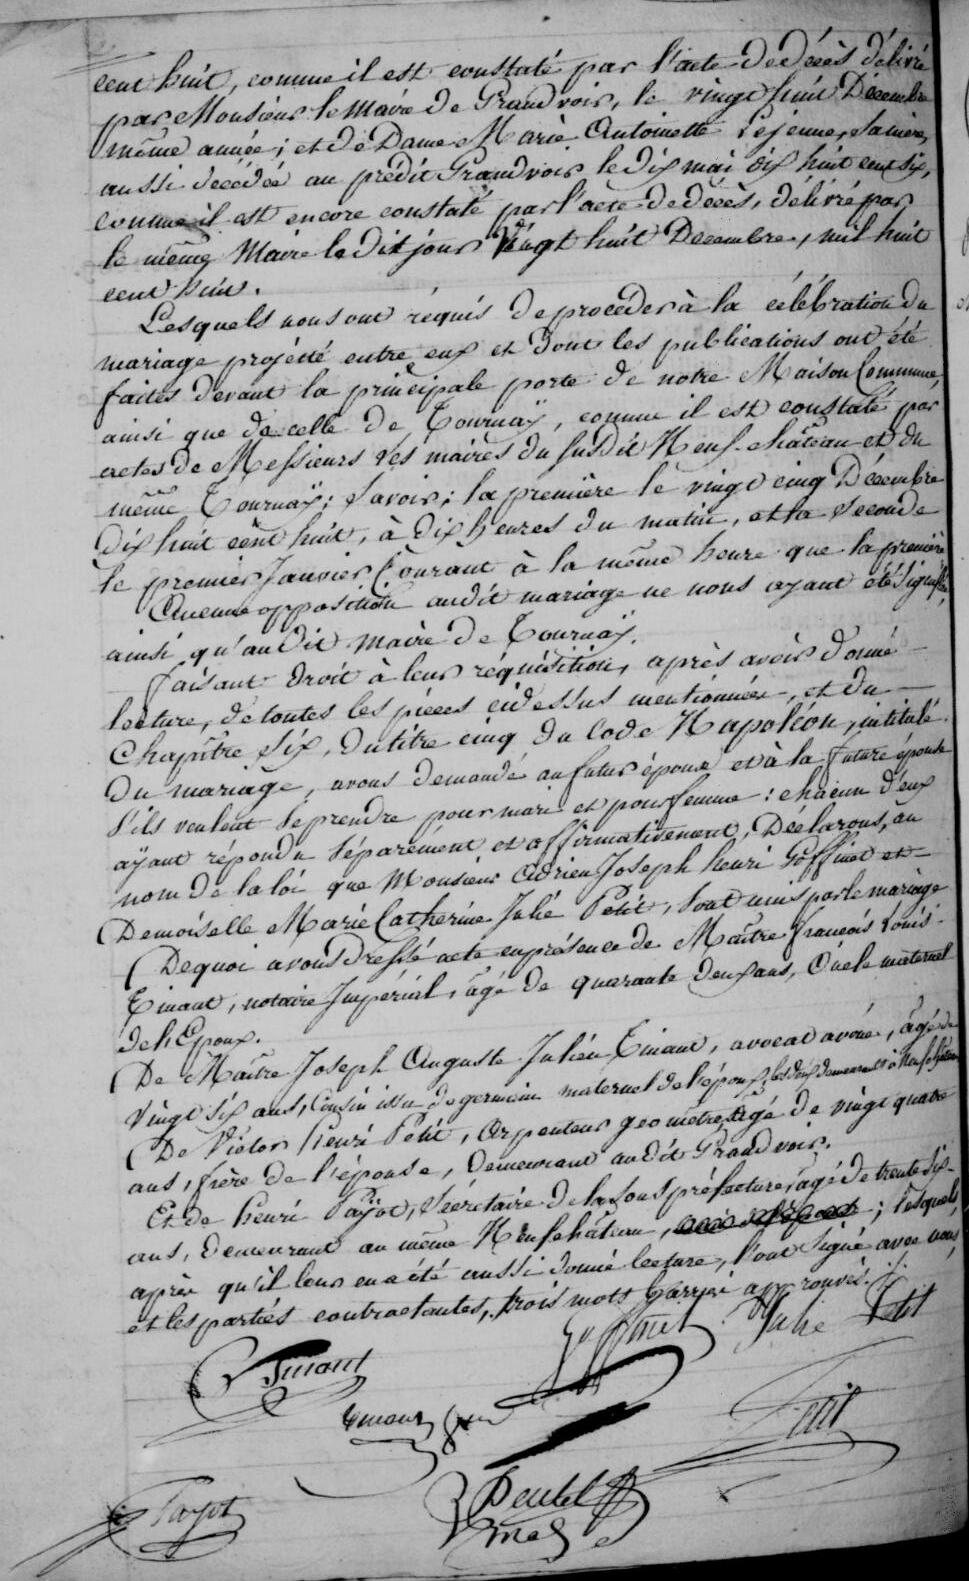 cent huit, comme il est constaté par l'acte de décès délivré
par Monsieur le Maire de Grandvoir, le vingt huit Décembre
même année; et de Dame Marie Antoinette Lejeune, sa mère,
aussi décédée au prédit Grandvoir le dix mai dix huit cent six,
comme il est encore constaté par l'acte de décès, délivré par
le même Maire le dit jour vingt huit Decembre, mil huit
cent huit.
Lesquels nous ont réquis de procéder à la célébration du
mariage projetté entre eux et dont les publications ont été
faites devant la principale porte de notre Maison Commune,
ainsi que de celle de Tournaÿ, comme il est constaté par
actes de Messieurs les maires du susdit Neufchâteau et du
même Tournaÿ; Savoir; la première le vingt cinq Décembre
dix huit cent huit, à dix heures du matin, et la seconde
le premier Janvier Courant à la même heure que la première
Aucune opposition audit mariage ne nous ayant été signifiée,
ainsi qu'au dit maire de Tournaÿ.
faisant droit à leur réquisition, après avoir donné
lecture, de toutes les pièces cidessus mentionnées, et du
Chapître six, du titre cinq du Code Napoléon, intitulé
Du mariage, avons demandé au futur époux et à la future épouse
s'ils veulent se prendre pour mari et pour femme: chacun d'eux
aÿant répondu séparément et affirmativement, Déclarons, au
nom de la loi que Monsieur Adrien Joseph henri Goffinet et
Demoiselle Marie Catherine Julie Petit, sont unis par le mariage
De quoi avons dressé acte en présence de Maître françois Louis
Tinant, notaire Impérial, âgé de quarante deux ans, Oncle maternel
de l'Epoux.
De Maître Joseph Auguste Julien Tinant, avocat avoué, âgé de
vingt six ans, Cousin issu de germain maternel de l'époux, les deux demeurants à Neufchâteau
De Victor henri Petit, Arpenteur géomètre, âgé de vingt quatre
ans, frère de l'épouse, demeurant audit Grandvoir.
Et de henri Paÿot, Sécrétaire de la Sous préfecture, âgé de trente six
ans, demeurant au même Neufchâteau, ; lesquels
après qu'il leur en a été aussi donné lecture, l'ont signé avec nous,
et les parties contractantes, trois mots barrés approuvés.
Goffinet Julie Petit
Tinant
Tinant
Petit
Payot